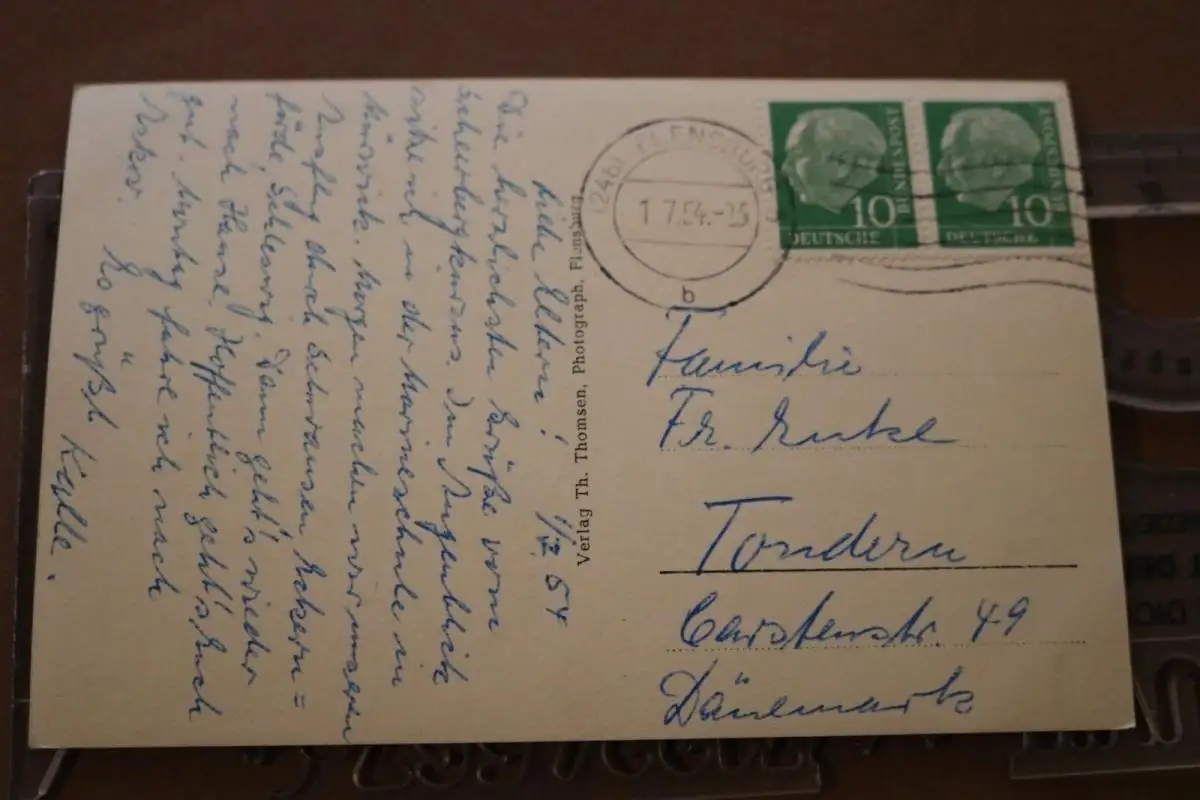 Liebe Eltern! 1/7. 54
Die herzlichsten Grüße vom
Scheersbergkursus. Im Augenblick
sitze ich in der Marineschule in
Mürwick. Morgen machen wir unseren
Ausflug durch Schwansen Eckern=
förde, Schleswig. Dann geht's wieder
nach Hause. Hoffentlich geht's Euch
gut. Montag fahre ich nach
Askov. Es grüßt
Kalle.
Verlag Th. Thomsen, Photograph, Flensburg
(24b) FLENSBURG
1.7.54.-
b
10
DEUTSCHE
BUNDESPOST
10
DEUTSCHE
BUNDESPOST
Familie
Fr.
Tondern
Carstenstr. 49
Dänemark